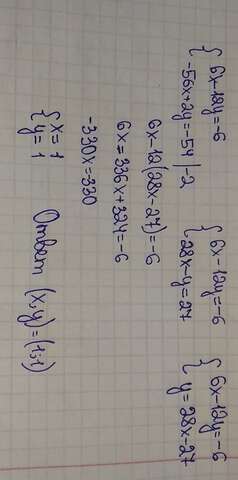 { 6x-12y=-6 { 6x-12y=-6 { 6x-12y=-6
-56x+2y=-54 |-2 28x-y=27 y=28x-27
6x-12(28x-27)=-6
6x=336x+324=-6
-330x=-330
{ x=1
y=1 Ответ (x;y)=(1;1)